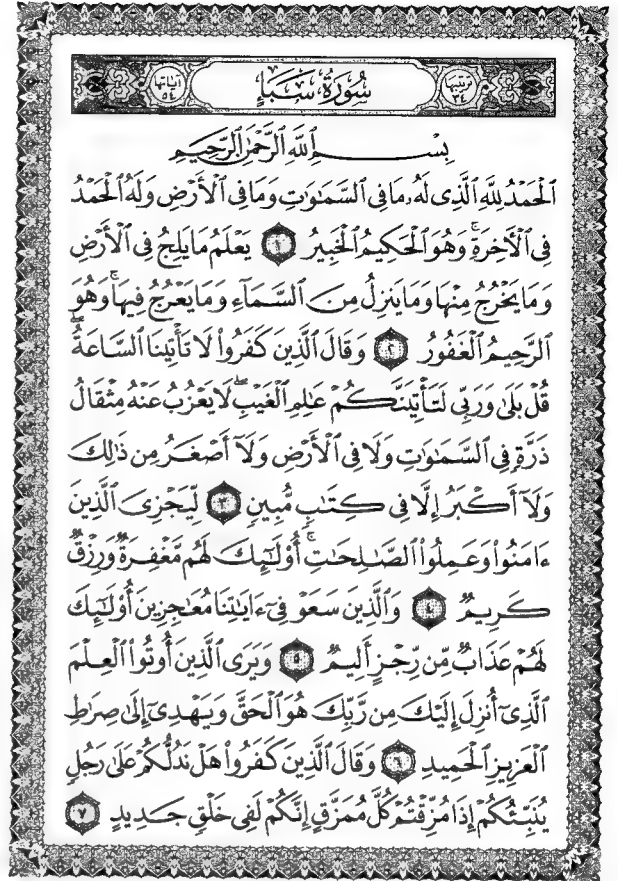 ترتيبها ٣٤ سُورَةُ سَبَإٍ آياتها ٥٤
بِسْمِ ٱللَّهِ ٱلرَّحْمَٰنِ ٱلرَّحِيمِ
ٱلْحَمْدُ لِلَّهِ ٱلَّذِى لَهُۥ مَا فِى ٱلسَّمَٰوَٰتِ وَمَا فِى ٱلْأَرْضِ وَلَهُ ٱلْحَمْدُ
فِى ٱلْأٓخِرَةِ ۚ وَهُوَ ٱلْحَكِيمُ ٱلْخَبِيرُ ١ يَعْلَمُ مَا يَلِجُ فِى ٱلْأَرْضِ
وَمَا يَخْرُجُ مِنْهَا وَمَا يَنزِلُ مِنَ ٱلسَّمَآءِ وَمَا يَعْرُجُ فِيهَا ۚ وَهُوَ
ٱلرَّحِيمُ ٱلْغَفُورُ ٢ وَقَالَ ٱلَّذِينَ كَفَرُوا۟ لَا تَأْتِينَا ٱلسَّاعَةُ ۖ
قُلْ بَلَىٰ وَرَبِّى لَتَأْتِيَنَّكُمْ عَٰلِمِ ٱلْغَيْبِ ۖ لَا يَعْزُبُ عَنْهُ مِثْقَالُ
ذَرَّةٍ فِى ٱلسَّمَٰوَٰتِ وَلَا فِى ٱلْأَرْضِ وَلَآ أَصْغَرُ مِن ذَٰلِكَ
وَلَآ أَكْبَرُ إِلَّا فِى كِتَٰبٍ مُّبِينٍ ٣ لِّيَجْزِىَ ٱلَّذِينَ
ءَامَنُوا۟ وَعَمِلُوا۟ ٱلصَّٰلِحَٰتِ ۚ أُو۟لَٰٓئِكَ لَهُم مَّغْفِرَةٌ وَرِزْقٌ
كَرِيمٌ ٤ وَٱلَّذِينَ سَعَوْ فِىٓ ءَايَٰتِنَا مُعَٰجِزِينَ أُو۟لَٰٓئِكَ
لَهُمْ عَذَابٌ مِّن رِّجْزٍ أَلِيمٌ ٥ وَيَرَى ٱلَّذِينَ أُوتُوا۟ ٱلْعِلْمَ
ٱلَّذِىٓ أُنزِلَ إِلَيْكَ مِن رَّبِّكَ هُوَ ٱلْحَقَّ وَيَهْدِىٓ إِلَىٰ صِرَٰطِ
ٱلْعَزِيزِ ٱلْحَمِيدِ ٦ وَقَالَ ٱلَّذِينَ كَفَرُوا۟ هَلْ نَدُلُّكُمْ عَلَىٰ رَجُلٍ
يُنَبِّئُكُمْ إِذَا مُزِّقْتُمْ كُلَّ مُمَزَّقٍ إِنَّكُمْ لَفِى خَلْقٍ جَدِيدٍ ٧